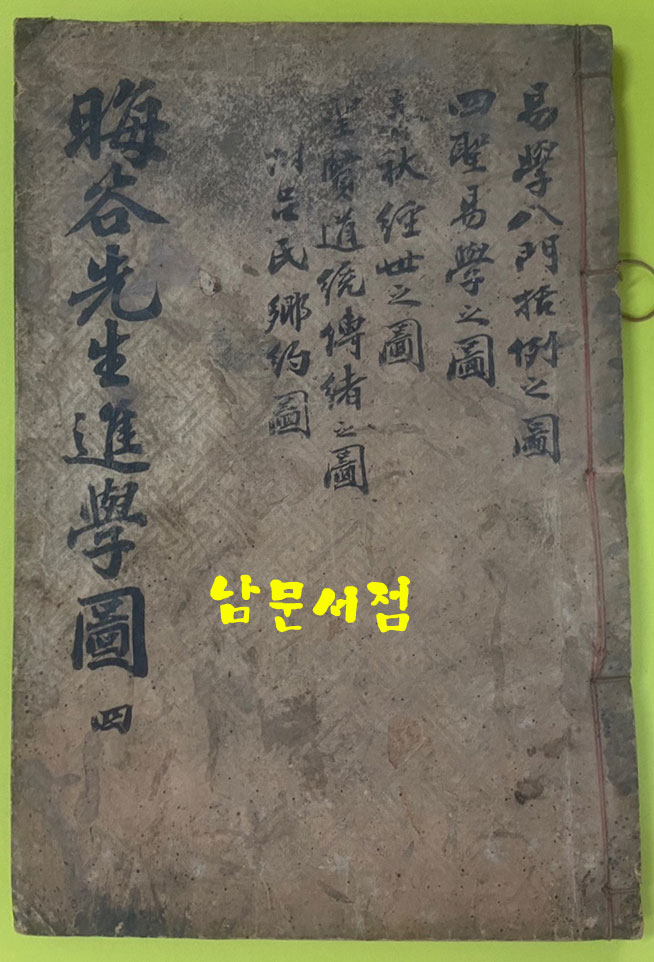 易學八門括例之圖
四聖易學之圖
春秋經世之圖
聖賢道統傳緖之圖
附呂氏鄕約圖
晦谷先生進學圖 四
남문서점